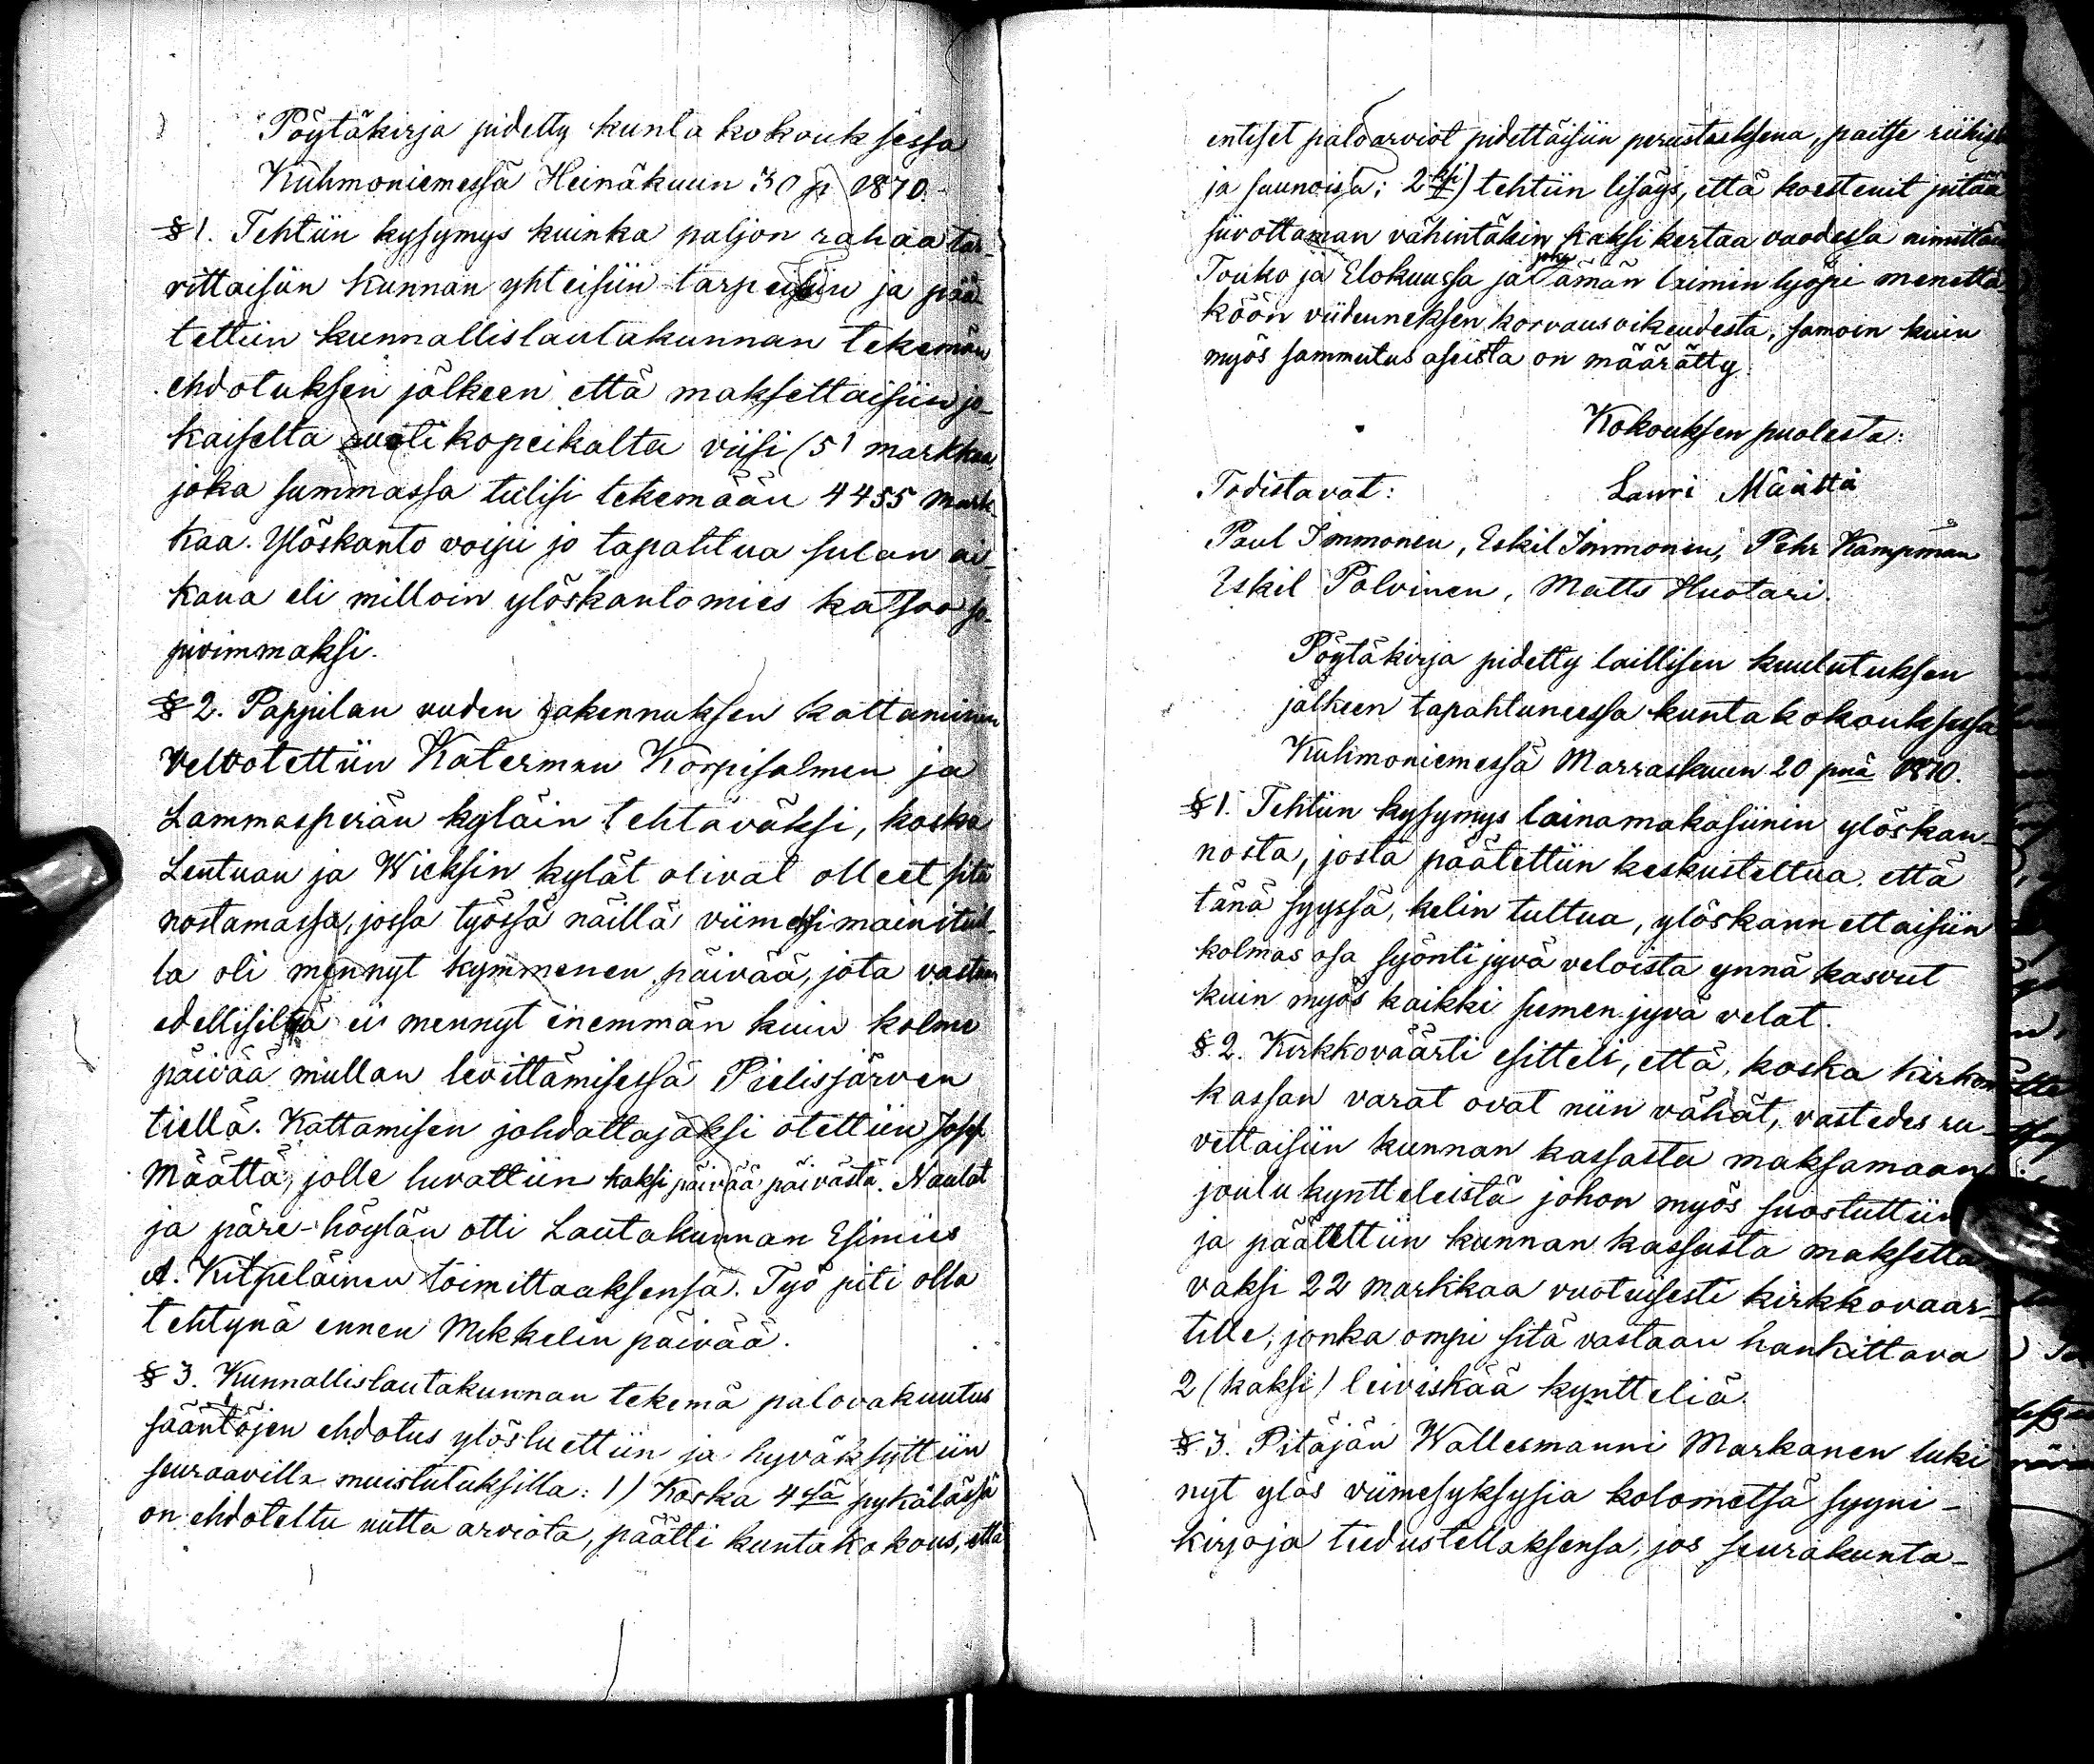 Pöytäkirja pidetty kunta kokouksessa
Kuhmoniemessä Heinäkuun 30 p 1870.
§ 1. Tehtiin kysymys kuinka paljon rahaa tar-
vittaisiin kunnan yhteisiin tarpeisiin ja pää
tettiin kunnallislautakunnan tekemän
ehdotuksen jälkeen että maksettaisiin jo-
kaiselta kopeikalta viisi (5) markkaa,
joka summassa tulisi tekemään 4455 mark-
kaa. Ylöskanto voipi jo tapahtua sulan ai-
kana eli milloin ylöskantomies katsoo so-
pivimmaksi.
§ 2. Pappilan uuden rakennuksen kattaminen
velvotettiin Katerman Korpisalmen ja
Lammasperän kyläin tehtäväksi, koska
Lentuan ja Wieksin kylät olivat olleet sitä
nostamassa, jossa työssä näillä viimeksimainitul-
la oli mennyt kymmenen päivää, jota vastaan
edellisiltä ei mennyt enemmän kuin kolme
päivää mullan levittämisessä Pielisjärven
tiellä. Kattamisen johdattajaksi otettiin Josef
Määttä, jolle luvattiin kaksi päivää päivästä. Naulat
ja päre-höylän otti Lautakunnan Esimies
A. Kilpeläinen toimittaaksensa. Työ piti olla
tehtynä ennen Mikkelin päivää.
§ 3. Kunnallislautakunnan tekemä palovakuutus
sääntöjen ehdotus ylösluettiin ja hyväksyttiin
seuraavilla muistutuksilla: 1) Koska 4ssä pykälässä
on ehdoteltu uutta arviota, päätti kuntakokous, että
entiset paloarviot pidettäisiin perustuksena, paitse riihistä
ja saunoista; 2ksi) tehtiin lisäys, että korstenit pitää
siivottaman vähintäkin kaksi kertaa vuodessa nimittäin
Touko ja Elokuussa ja joka tämän laimin lyöpi menettä
köön viidenneksen korvausoikeudesta, samoin kuin
myös sammutus aseista on määrätty.
Kokouksen puolesta:
Todistavat: Lauri Määttä
Paul Immonen, Eskil Immonen, Pehr Kampman
Eskil Polvinen, Matts Huotari.
Pöytäkirja pidetty laillisen kuulutuksen
jälkeen tapahtuneessa kuntakokouksessa
Kuhmoniemessä Marraskuun 20 pnä 1870.
§ 1. Tehtiin kysymys lainamakasiinin ylöskan-
nosta, josta päätettiin keskusteltua, että
tänä syyssä, kelin tultua, ylöskannettaisiin
kolmas osa syönti jyvä veloista ynnä kasvut
kuin myös kaikki siemen jyvä velat.
§ 2. Kirkkoväärti esitteli, että, koska kirkon
kassan varat ovat niin vähät, vastedes ru-
vettaisiin kunnan kassasta maksamaan
joulu kyntteleistä johon myös suostuttiin
ja päätettiin kunnan kassasta maksetta
vaksi 22 markkaa vuotuisesti kirkkovaar-
tille, jonka ompi sitä vastaan hankittava
2 (kaksi) leiviskää kyntteliä.
§ 3. Pitäjän Wallesmanni Markanen luki
nyt ylös viimesyksysia kolometsä syyni-
kirjoja tiedustellaksensa, jos seurakunta-